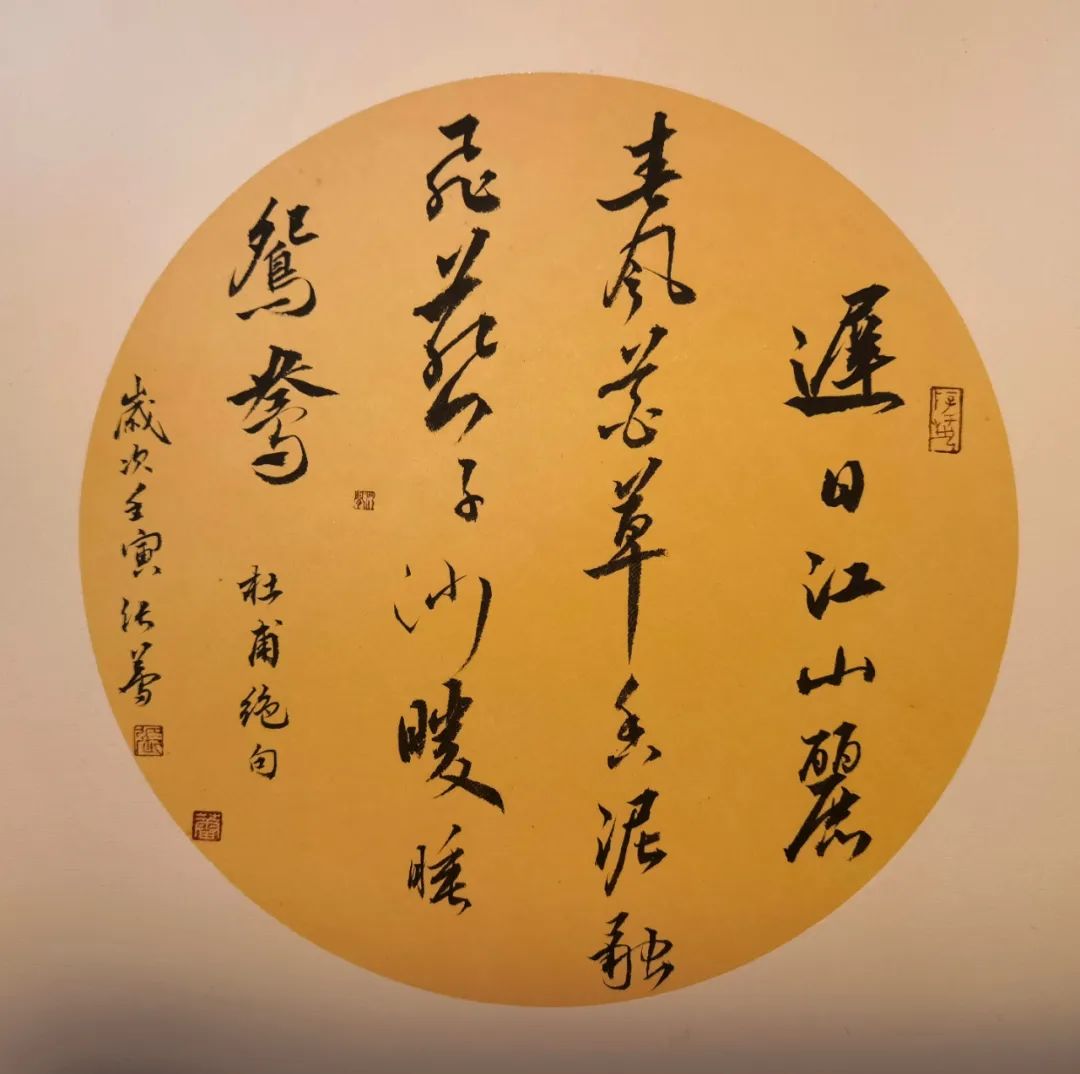 遲日江山麗
春風花草香泥融
飛燕子沙暖睡
鴛鴦 杜甫絕句
歲次壬寅張
張